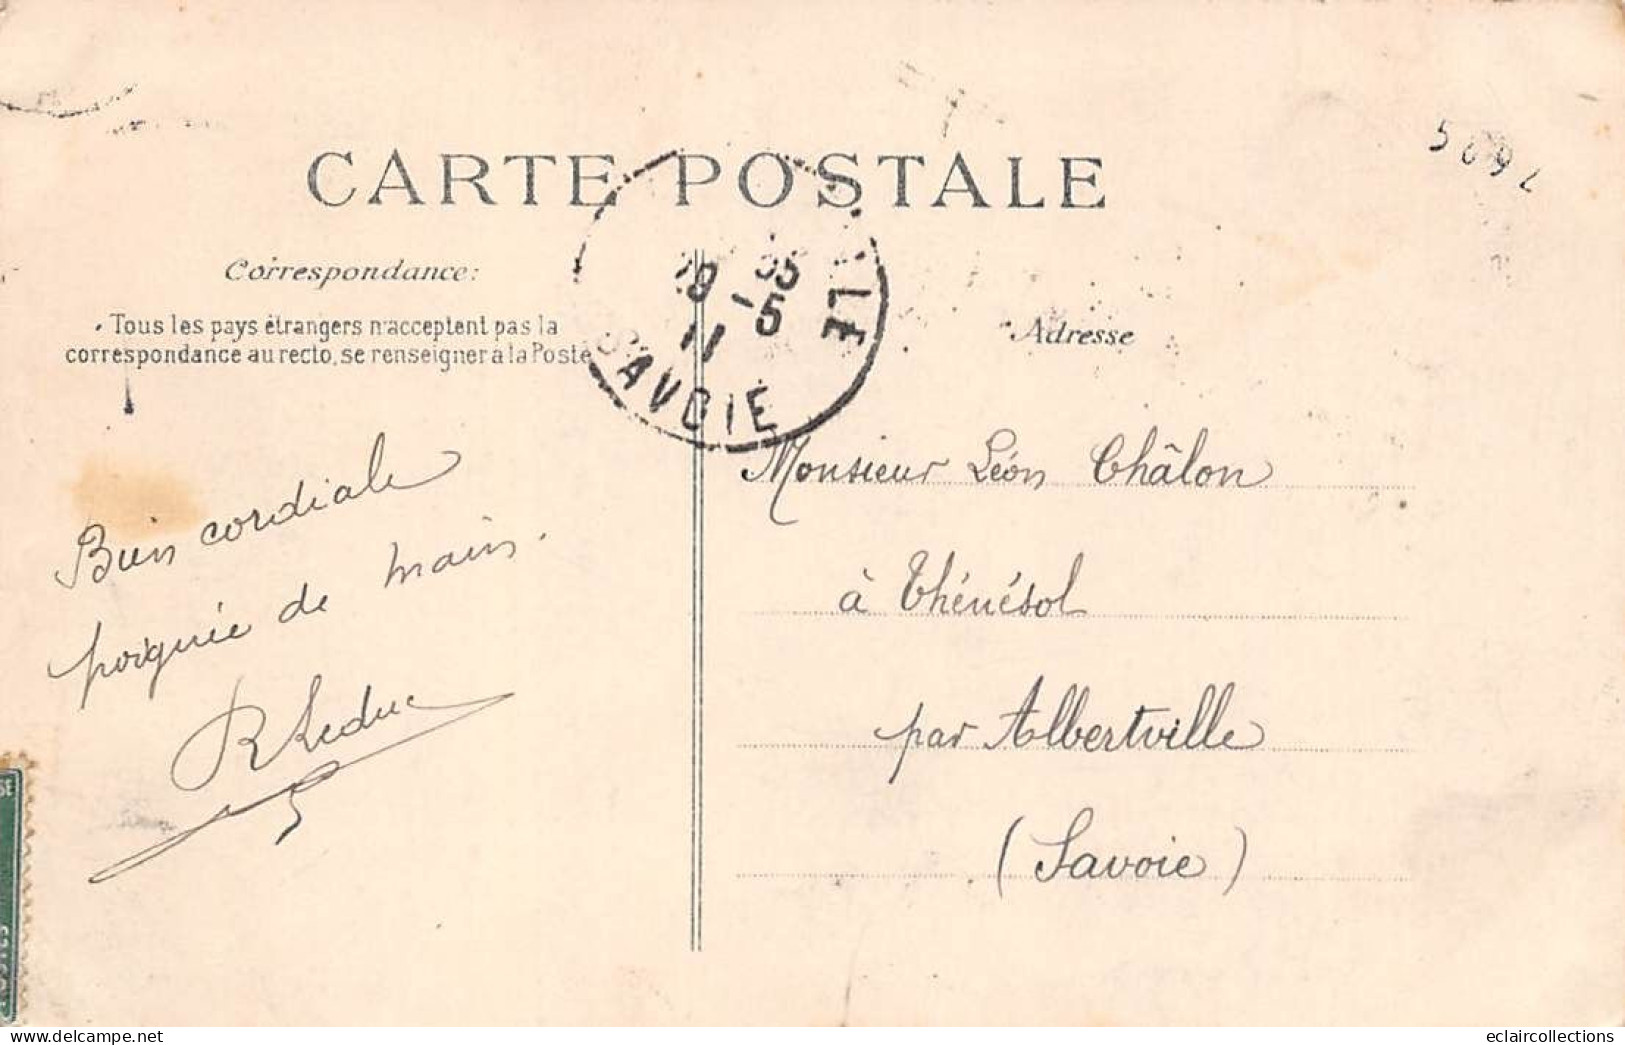 CARTE POSTALE
5692
Correspondance:
Tous les pays étrangers n'acceptent pas la
correspondance au recto, se renseigner à la Poste
Adresse
-5
11
SAVOIE
Bien cordiale
poignée de main.
R Leduc
Monsieur Léon Châlon
à Thénésol
par Albertville
(Savoie)
eclaircollections